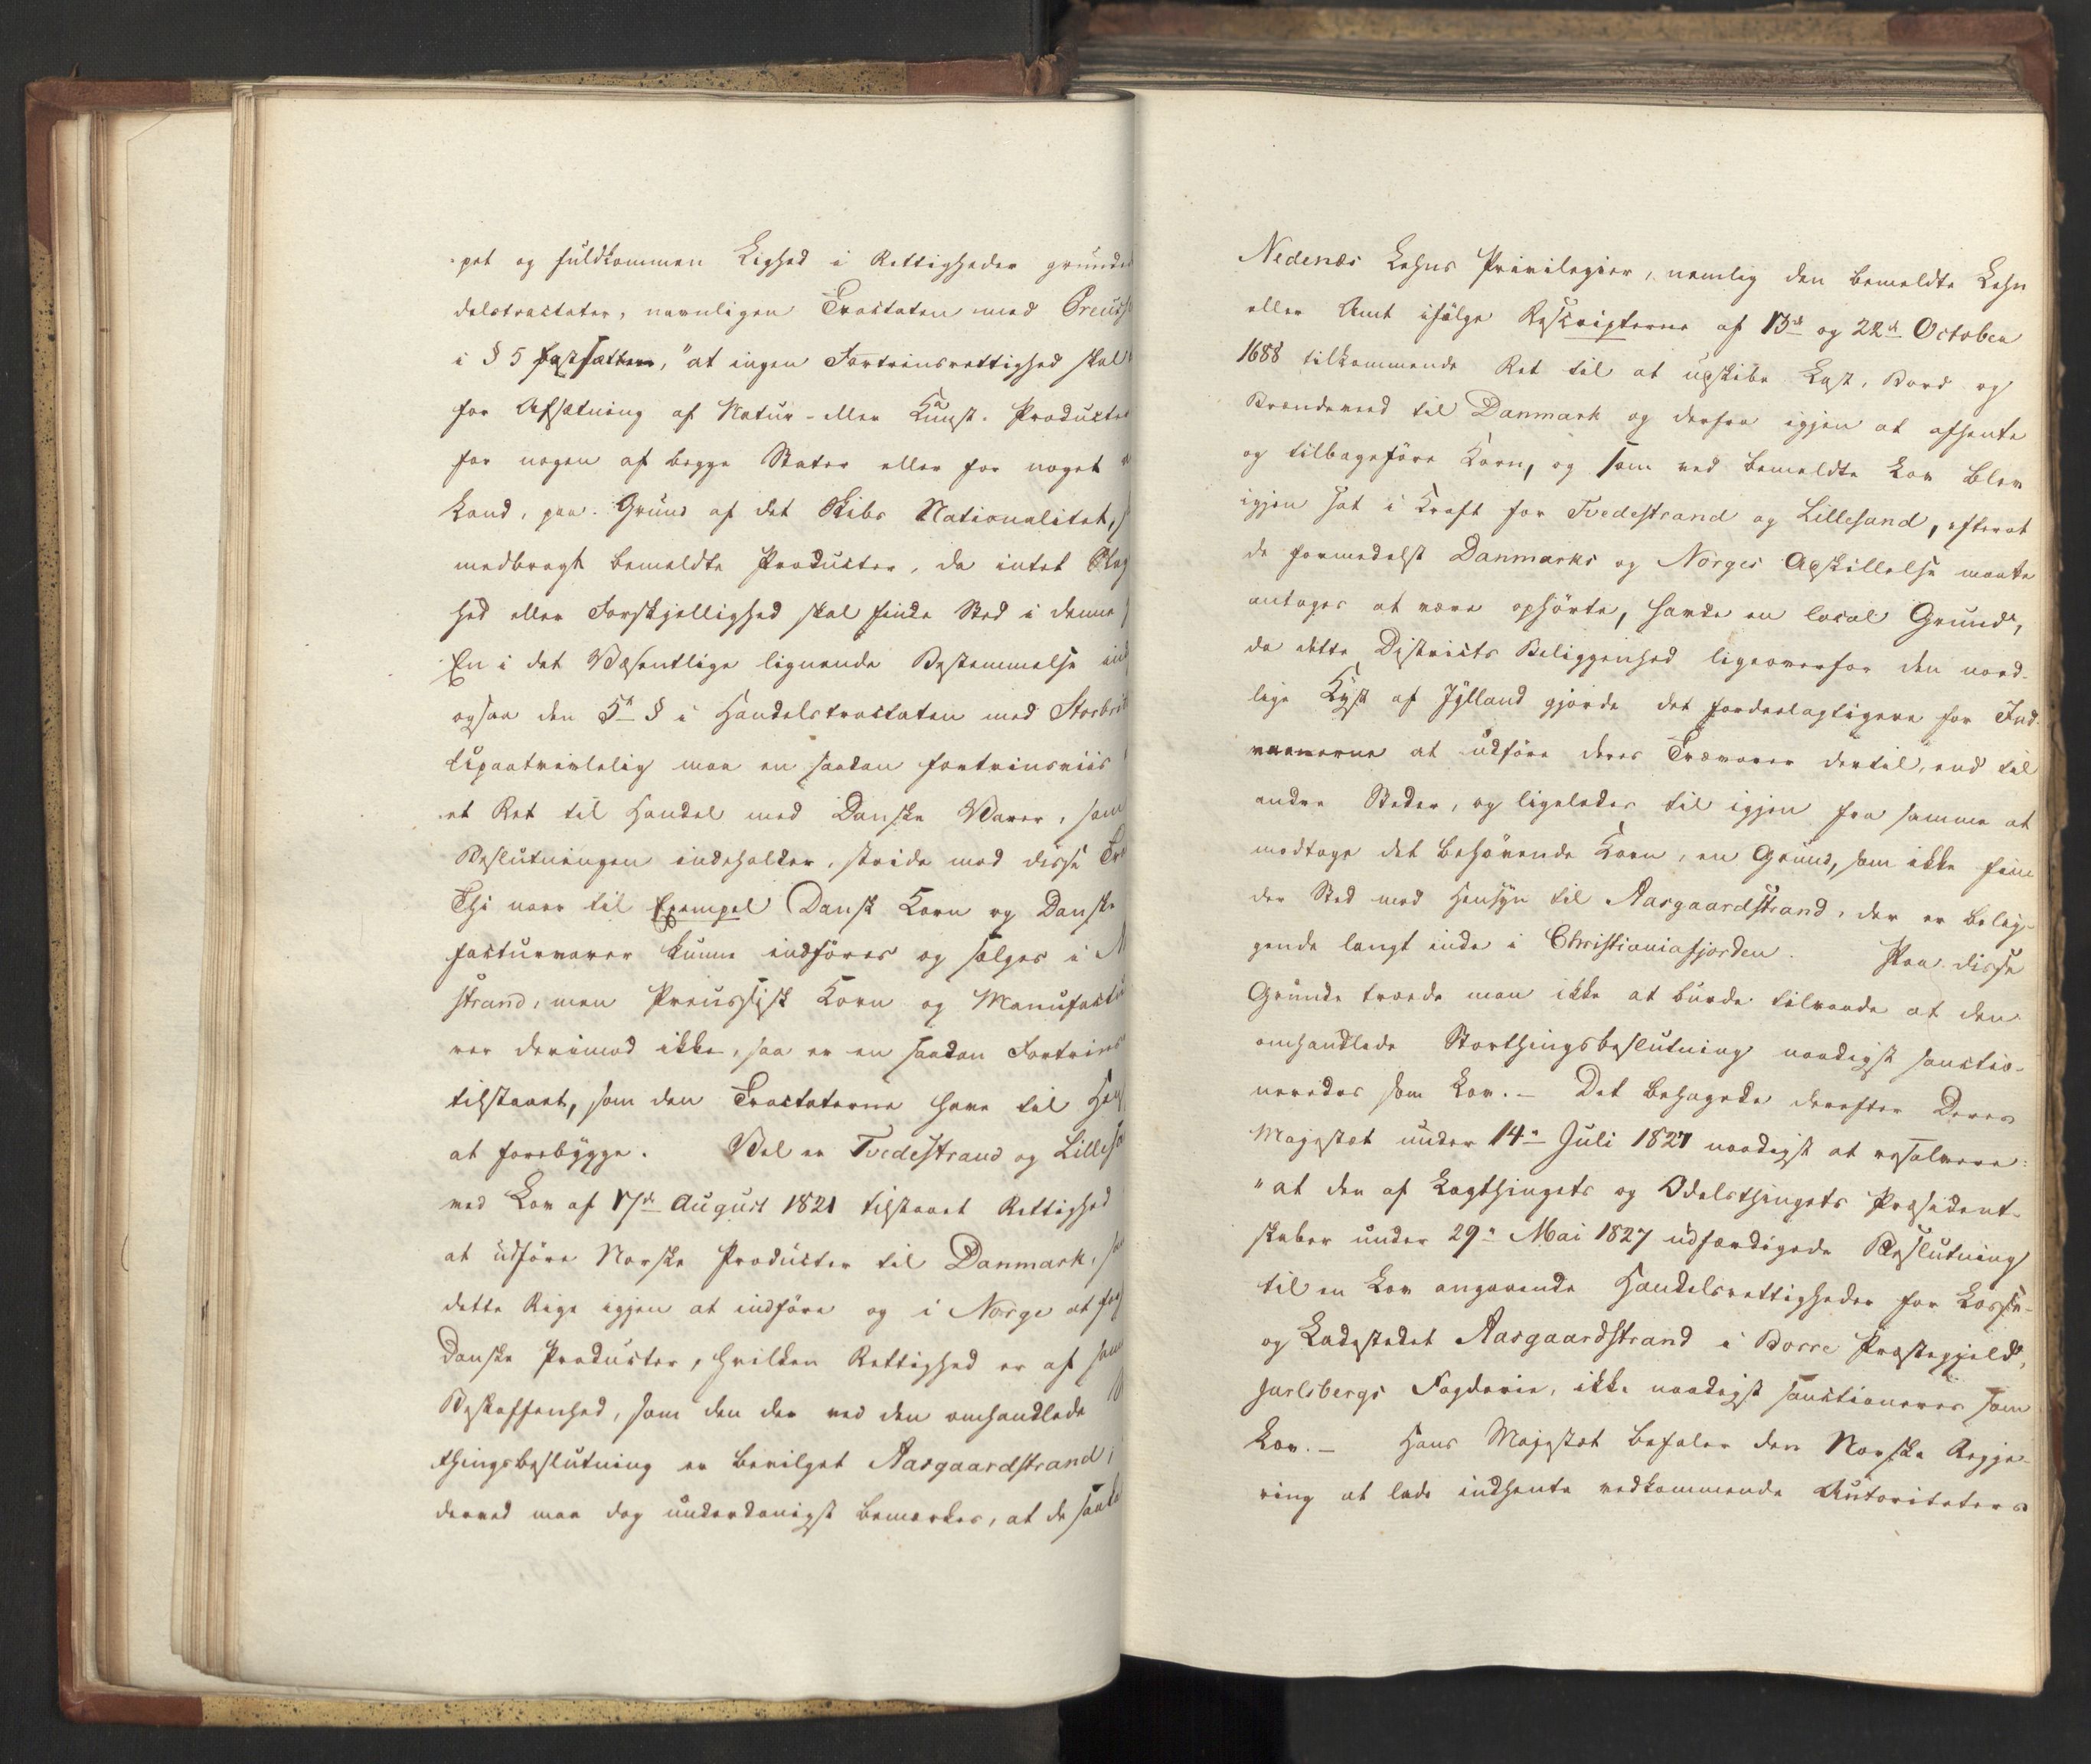 pet og fuldkommen Lighed i Rettigheder grunded
delstractater, navnligen Tractaten med Preuss
i § 5 fastsætter, "at ingen Fortrinsrettighed skal
for Afsætning af Natur- eller Kunst-Producter
for nogen af begge Stater eller for noget
Land, paa Grund af det Skibs Nationalitet,
medbragt bemeldte Producter, da intet
hed eller Forskjellighed skal finde Sted i denne
En i det Væsentlige lignende Bestemmelse ind
ogsaa den 5te § i Handelstractaten med Storbri
Upaatvivlelig maa en saadan fortrinsviis
et Ret til Handel med Danske Varer, som
Beslutningen indeholder, stride mod disse Tra
Thi naar til Exempel Dansk Korn og Danske
facturvarer kunne indføres og sælges i
strand, men Preussisk Korn og Manufactu
rer derimod ikke, saa er en saadan Fortrins
tilstaaet, som den Tractaterne have til Hen
at forebygge. Vel er Tvedestrand og Lillesa
ved Lov af 17de August 1821 tilstaaet Rettighed
at udføre Norske Producter til Danmark,
dette Rige igjen at indføre og i Norge at
Danske Producter, hvilken Rettighed er af samm
Beskaffenhed, som den der ved den omhandlede
thingsbeslutning er bevilget Aasgaardstrand,
derved maa dog underdanigst bemærkes, at de saak
Nedenæs Lehns Privilegier, nemlig den bemeldte Lehn
eller Amt ifølge Rescripterne af 13de og 22de October
1688 tilkommende Ret til at udskibe Last, Bord og
Brændeveed til Danmark og derfra igjen at afhente
og tilbageføre Korn, og som ved bemeldte Lov blev
igjen sat i Kraft for Tvedestrand og Lillesand, efterat
de formedelst Danmarks og Norges Adskillelse maatte
antages at være ophørte, havde en local Grund,
da dette Districts Beliggenhed ligeoverfor den nord-
lige Kyst af Jylland gjorde det fordeelagtigere for Ind-
vaanerne at udføre deres Trævarer dertil, end til
andre Steder, og ligeledes til igjen fra samme at
modtage det behøvende Korn, en Grund, som ikke fin
der Sted med Hensyn til Aasgaardstrand, der er belig-
gende langt inde i Christianiafjorden. Paa disse
Grunde troede man ikke at burde tilraade at den
omhandlede Storthingsbeslutning naadigst sanctio-
neredes som Lov. – Det behagede derefter Deres
Majestæt under 14de Juli 1827 naadigst at resolvere:
"at den af Lagthingets og Odelsthingets Præsident-
skaber under 29de Mai 1827 udfærdigede Beslutning
til en Lov angaaende Handelsrettigheder for Losse-
og Ladestedet Aasgaardstrand i Borre Præstegjeld,
Jarlsbergs Fogderie, ikke naadigst sanctioneres som
Lov. – Hans Majestæt befaler den Norske Regje-
ring at lade indhente vedkommende Autoriteters